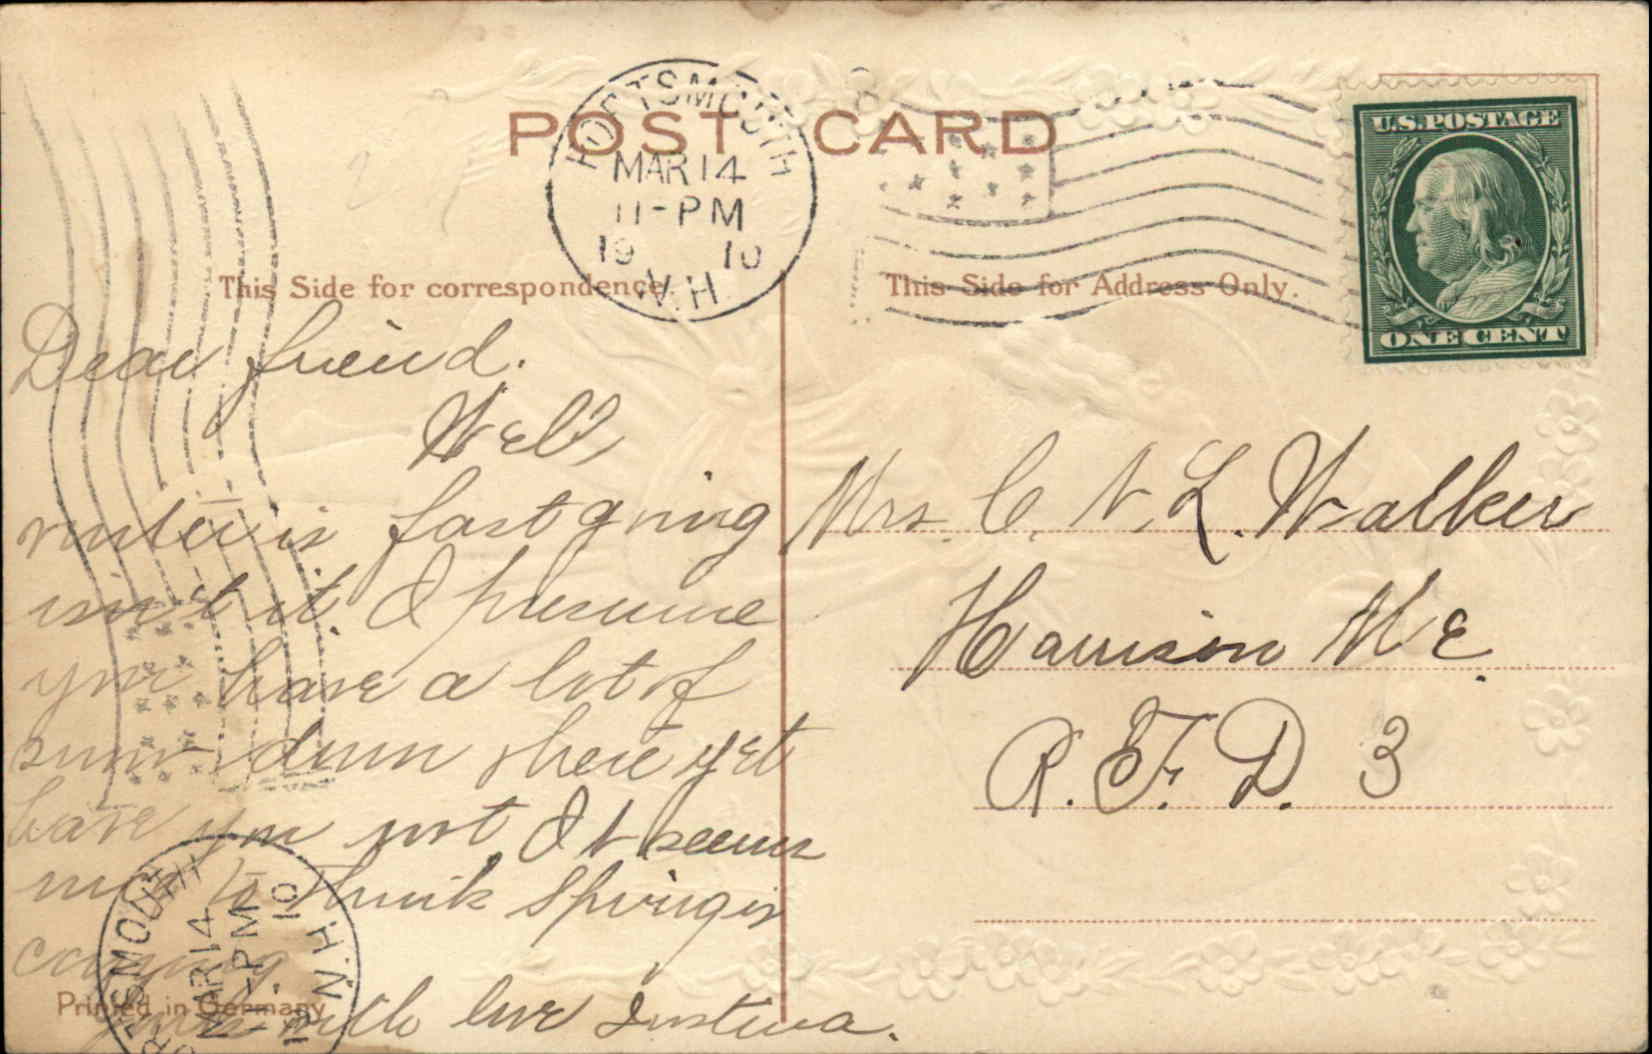 POST CARD
PORTSMOUTH
MAR 14
11-PM
19 10
N.H.
U.S. POSTAGE
ONE CENT
This Side for correspondence
This Side for Address Only.
Dear friend.
Well
winter is fast going
isn't it. I presume
you have a lot of
snow down there yet
have you not It seems
nice to think Spring is
coming.
with love Justina.
Printed in Germany
Mrs. C. N. L. Walker
Harrison Me.
R. F. D. 3
PORTSMOUTH
MAR 14
11-PM
19 10
N.H.